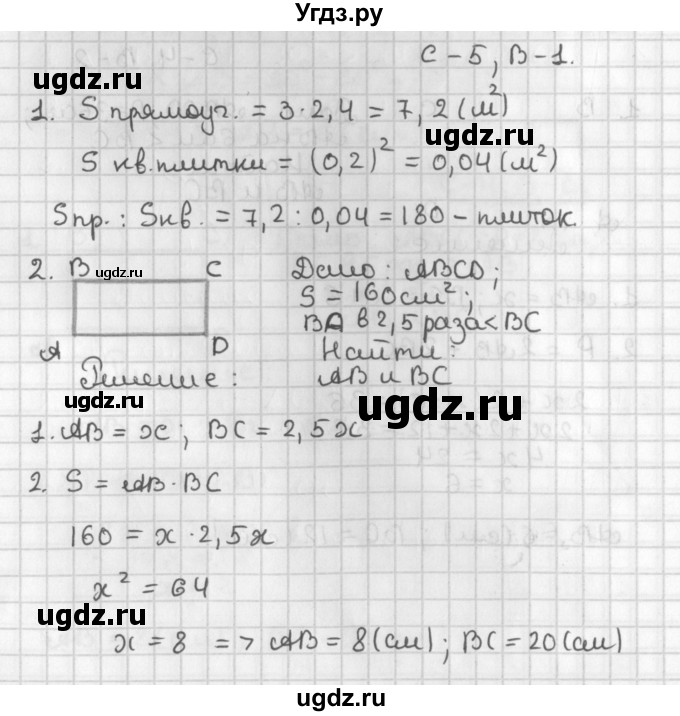 Угдз.ру
С – 5, В – 1.
ugdz.ru
1. S прямоуг. = 3 · 2,4 = 7,2 (м²)
ugdz.ru
S кв. плитки = (0,2)² = 0,04 (м²)
Sпр. : Sкв. = 7,2 : 0,04 = 180 – плиток.
2. B ugdz.ru C
Дано: ABCD;
S = 160 см²;
BA в 2,5 раза < BC
A D
Найти:
AB и BC
Решение:
ugdz.ru
ugdz.ru
1. AB = x; BC = 2,5x
2. S = AB · BC
160 = x · 2,5x
ugdz.ru
x² = 64
ugdz.ru
x = 8 => AB = 8 (см); BC = 20 (см)
ugdz.ru